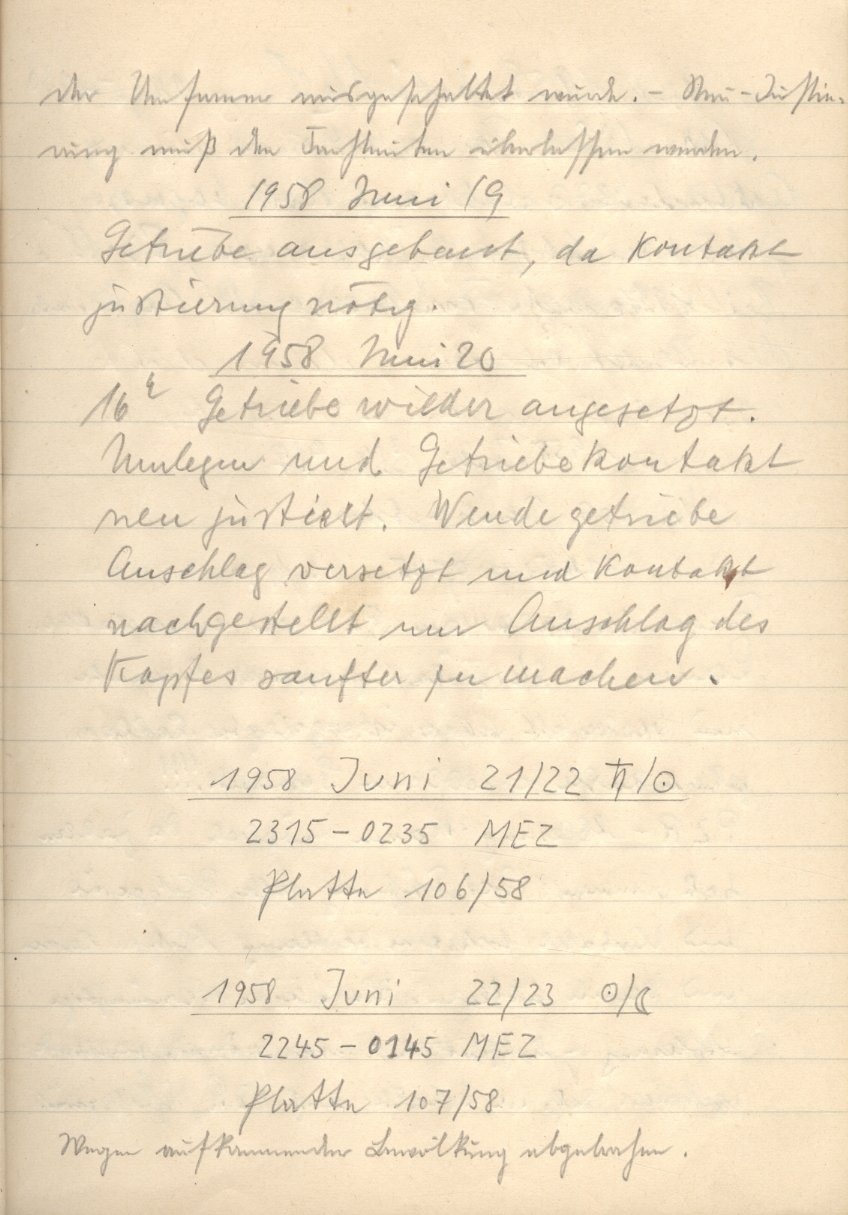 der Umformer ausgeschaltet wurde. – Neu-Justie-
rung muß den Fachleuten überlassen werden.
1958 Juni 19
Getriebe ausgebaut, da Kontakt
justierung nötig.
1958 Juni 20
16h Getriebe wieder angesetzt.
Umlegen und Getriebekontakt
neu justiert. Wendegetriebe
Anschlag versetzt und Kontakt
nachgestellt um Anschlag des
Kopfes sanfter zu machen.
1958 Juni 21/22 ♄/☉
2315–0235 MEZ
Platte 106/58
1958 Juni 22/23 ☉/☾
2245–0145 MEZ
Platte 107/58
Wegen aufkommender Bewölkung abgebrochen.